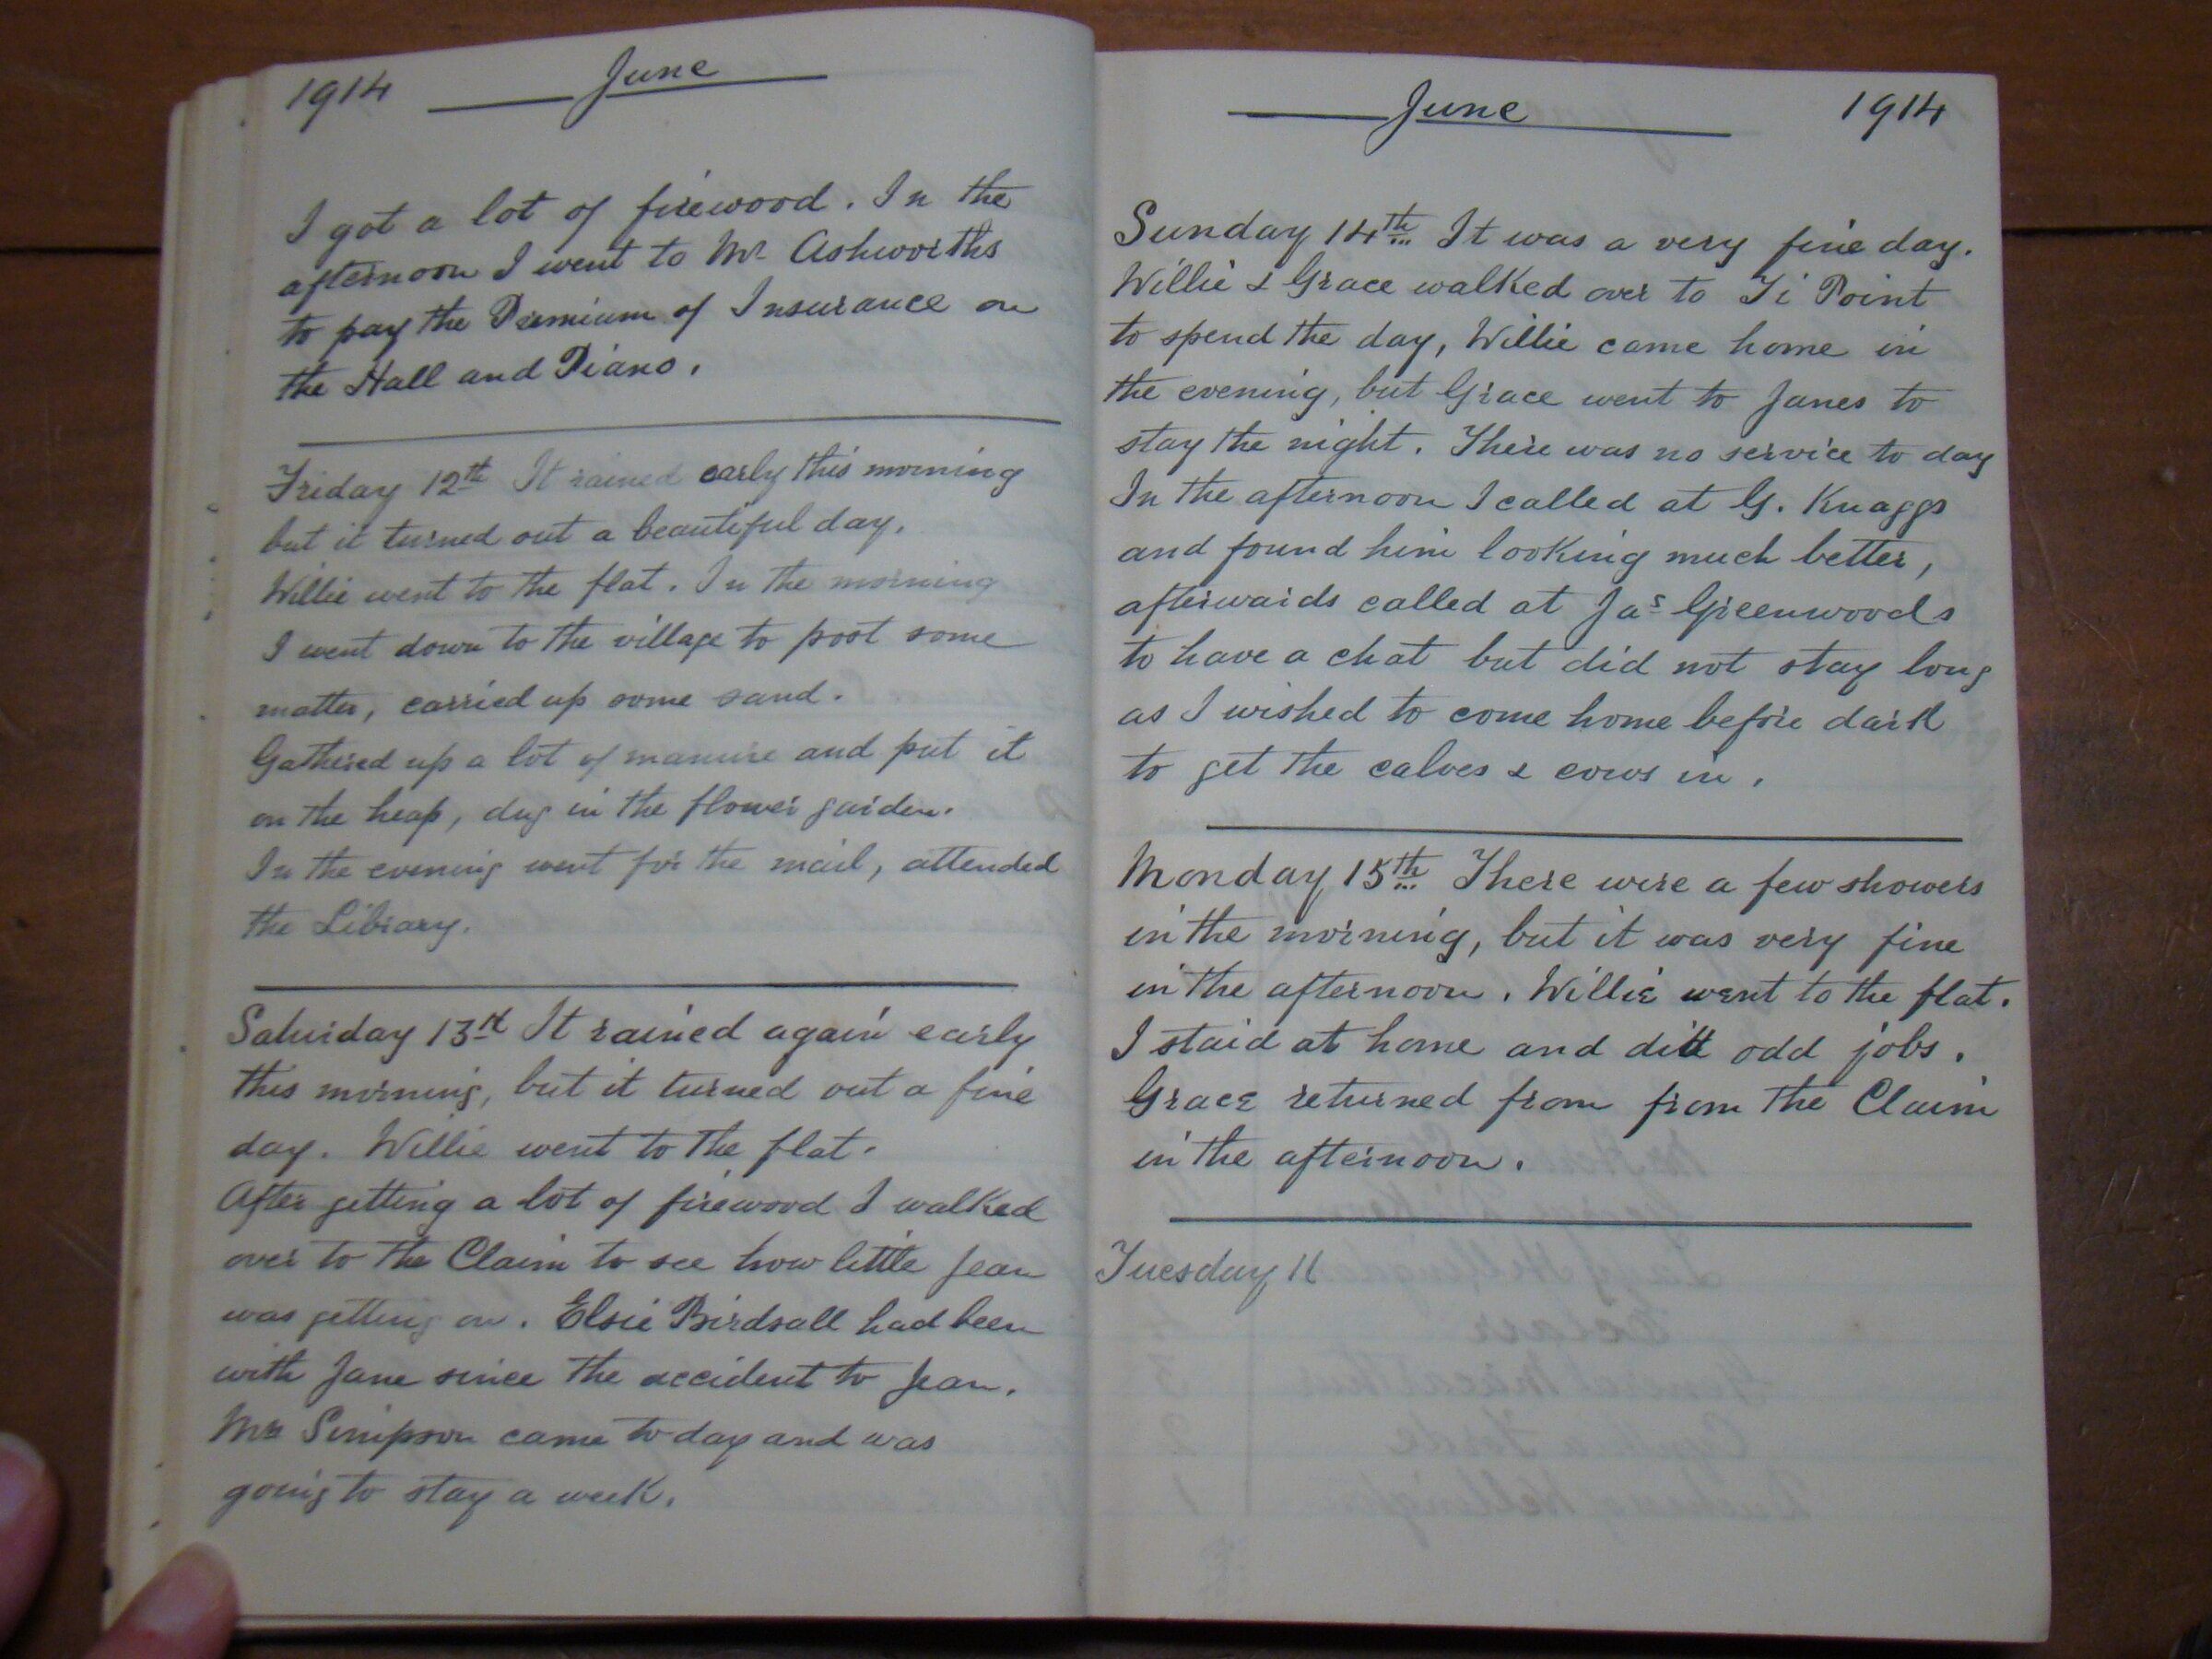 1914 June
I got a lot of firewood. In the
afternoon I went to Mr Ashworths
to pay the Premium of Insurance on
the Hall and Piano.
Friday 12th It rained early this morning
but it turned out a beautiful day.
Willie went to the flat. In the morning
I went down to the village to post some
matter, carried up some sand.
Gathered up a lot of manure and put it
on the heap, dug in the flower garden.
In the evening went for the mail, attended
the Library.
Saturday 13rd It rained again early
this morning, but it turned out a fine
day. Willie went to the flat.
After getting a lot of firewood I walked
over to the Claim to see how little Jean
was getting on. Elsie Birdsall had been
with Jane since the accident to Jean.
Mrs Simpson came to day and was
going to stay a week.
June 1914
Sunday 14th It was a very fine day.
Willie & Grace walked over to Ti Point
to spend the day, Willie came home in
the evening, but Grace went to Janes to
stay the night. There was no service to day
In the afternoon I called at G. Knaggs
and found him looking much better,
afterwards called at Jas Greenwoods
to have a chat but did not stay long
as I wished to come home before dark
to get the calves & cows in.
Monday 15th There were a few showers
in the morning, but it was very fine
in the afternoon. Willie went to the flat.
I staid at home and did odd jobs.
Grace returned from from the Claim
in the afternoon.
Tuesday 1